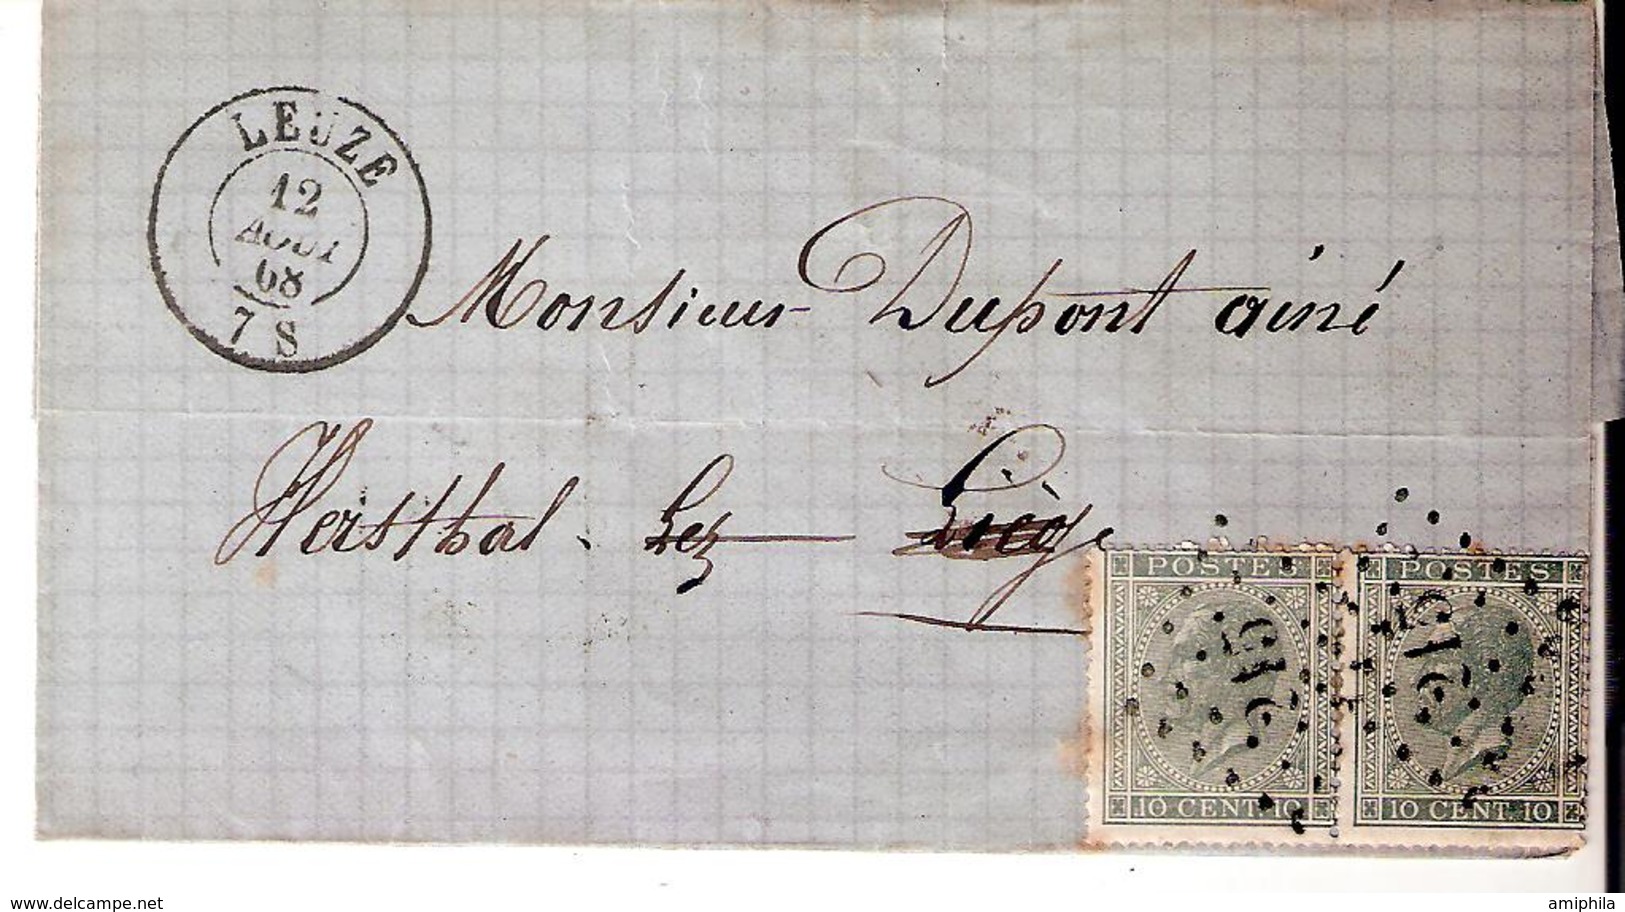 LEUZE
12
AOUT
68
7 S
Monsieur Dupont ainé
Hersthal. Lez Liège
POSTES
10 CENT. 10
POSTES
10 CENT. 10
216
216
www.delcampe.net
amiphila